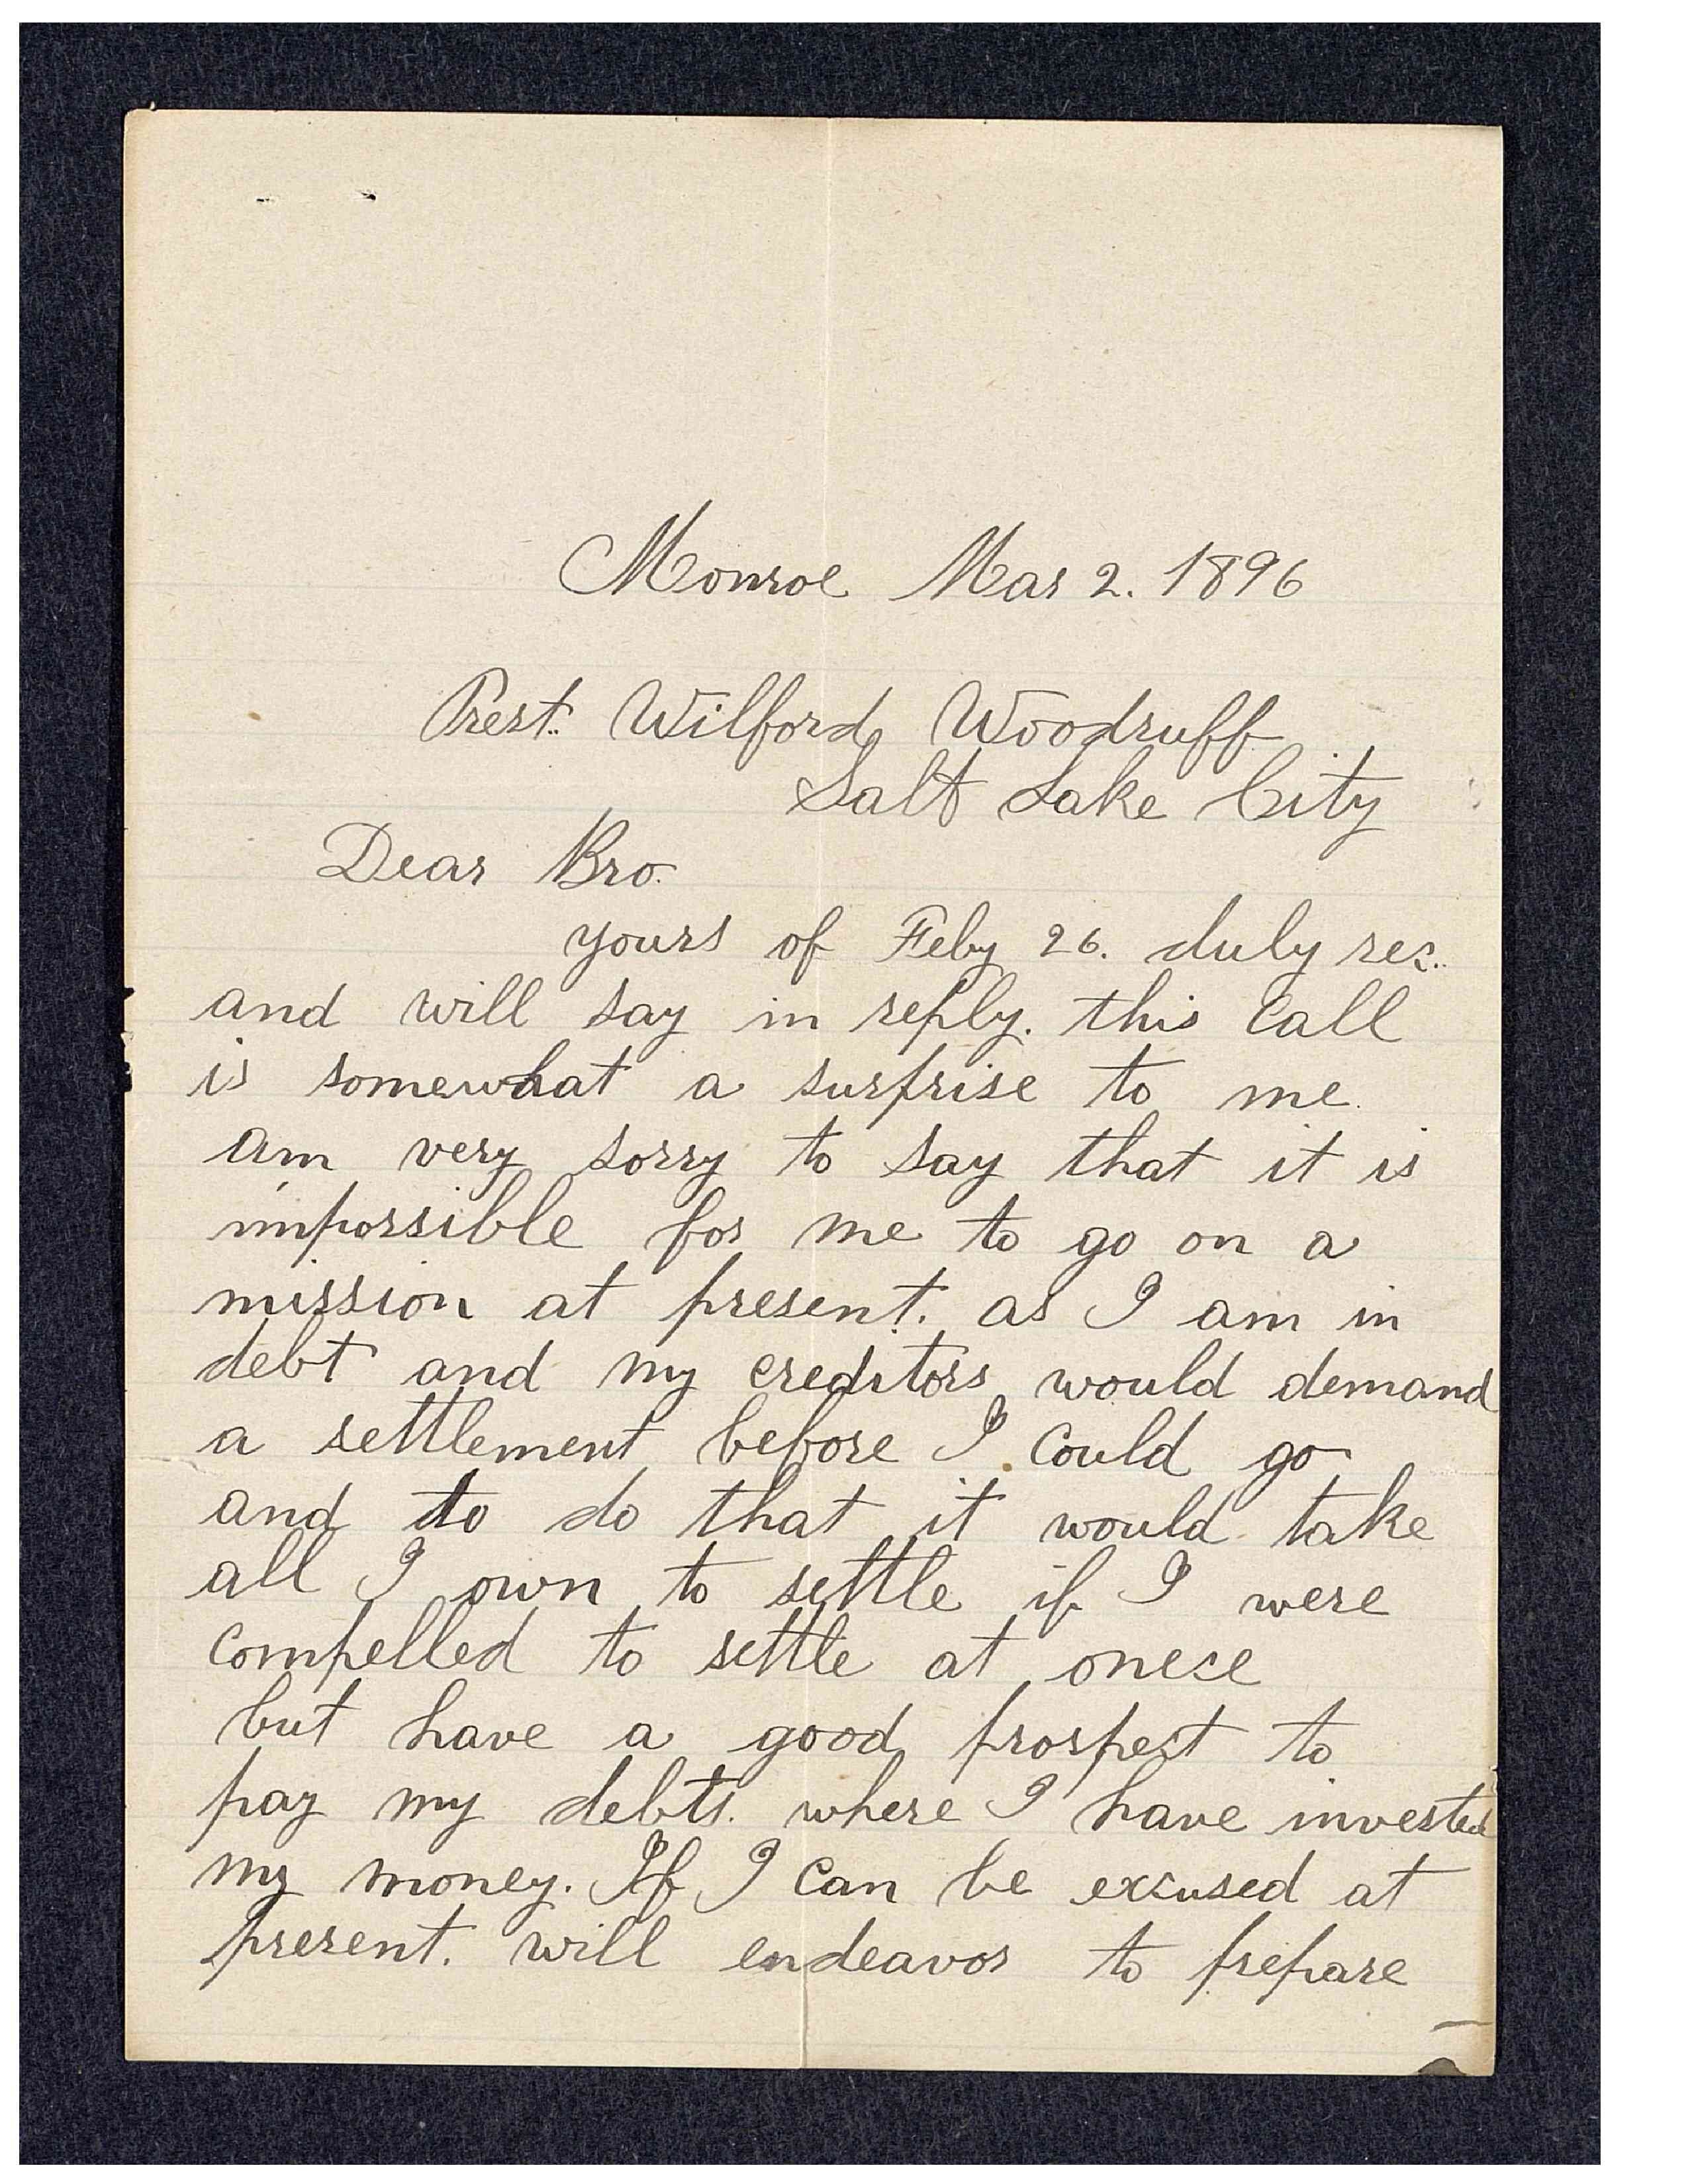 Monroe Mar 2. 1896
Prest. Wilford Woodruff
Salt Lake City
Dear Bro.
yours of Feby 26. duly rec.
and will say in reply. this call
is somewhat a surprise to me.
am very sorry to say that it is
impossible for me to go on a
mission at present. as I am in
debt and my creditors would demand
a settlement before I could go
and to do that it would take
all I own to settle if I were
compelled to settle at onece
but have a good prospect to
pay my debts. where I have invested
my money. If I can be excused at
present. will endeavor to prepare